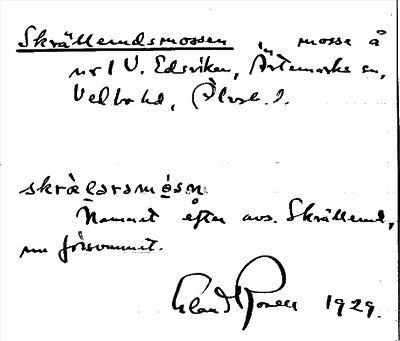 Skrällerudsmossen mosse å
nr 1 V. Edsviken, Ärtemarks sn,
Vedbo hd, Älvsb. l.
skræ̀l̥ərsmósən
Namnet efter avs. Skrällerud,
nu försvunnet.
Roland Rosell 1929.